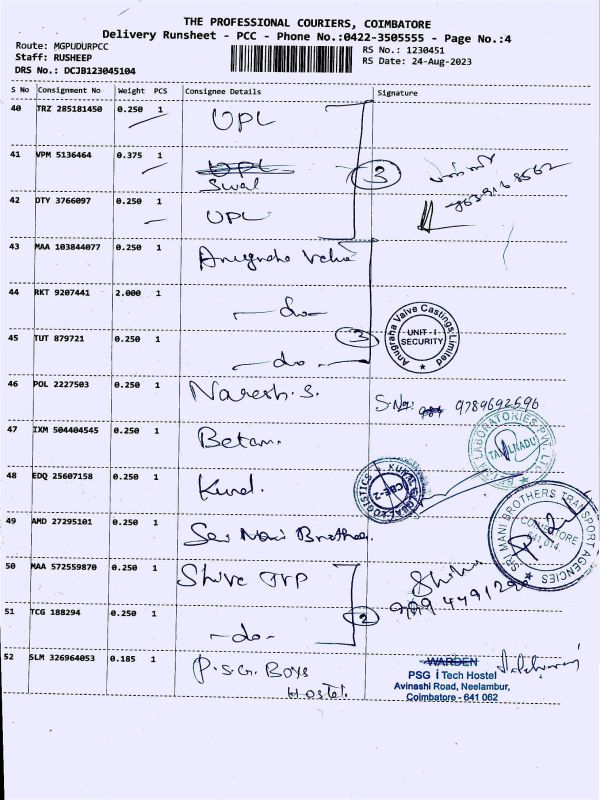 THE PROFESSIONAL COURIERS, COIMBATORE
Delivery Runsheet - PCC - Phone No.:0422-3505555 - Page No.:4
Route: MGPUDURPCC
Staff: RUSHEEP
DRS No.: DCJB123045104
RS No.: 1230451
RS Date: 24-Aug-2023
S No Consignment No Weight PCS Consignee Details Signature
40 TRZ 285181450 0.250 1 UPL
41 VPM 5136464 0.375 1 Swal
3
42 DTY 3766097 0.250 1 UPL
43 MAA 103844077 0.250 1 Anugraha Valve
44 RKT 9207441 2.000 1 -do-
45 TUT 879721 0.250 1 -do- 3
Anugraha Valve Castings Limited
UNIT - I
SECURITY
46 POL 2227503 0.250 1 Naresh. S. 9789692596
47 IXM 504404545 0.250 1
TAMILNADU
48 EDQ 25607158 0.250 1
CBE-2
49 AMD 27295101 0.250 1 Sri Mani Brothers.
SRI MANI BROTHERS TRANSPORT AGENCIES
COIMBATORE
641 014
50 MAA 572559870 0.250 1 Shiva
51 TCG 188294 0.250 1 -do- 2
52 SLM 326964053 0.185 1 P.S.G. Boys
Hostel.
WARDEN
PSG i Tech Hostel
Avinashi Road, Neelambur,
Coimbatore - 641 062